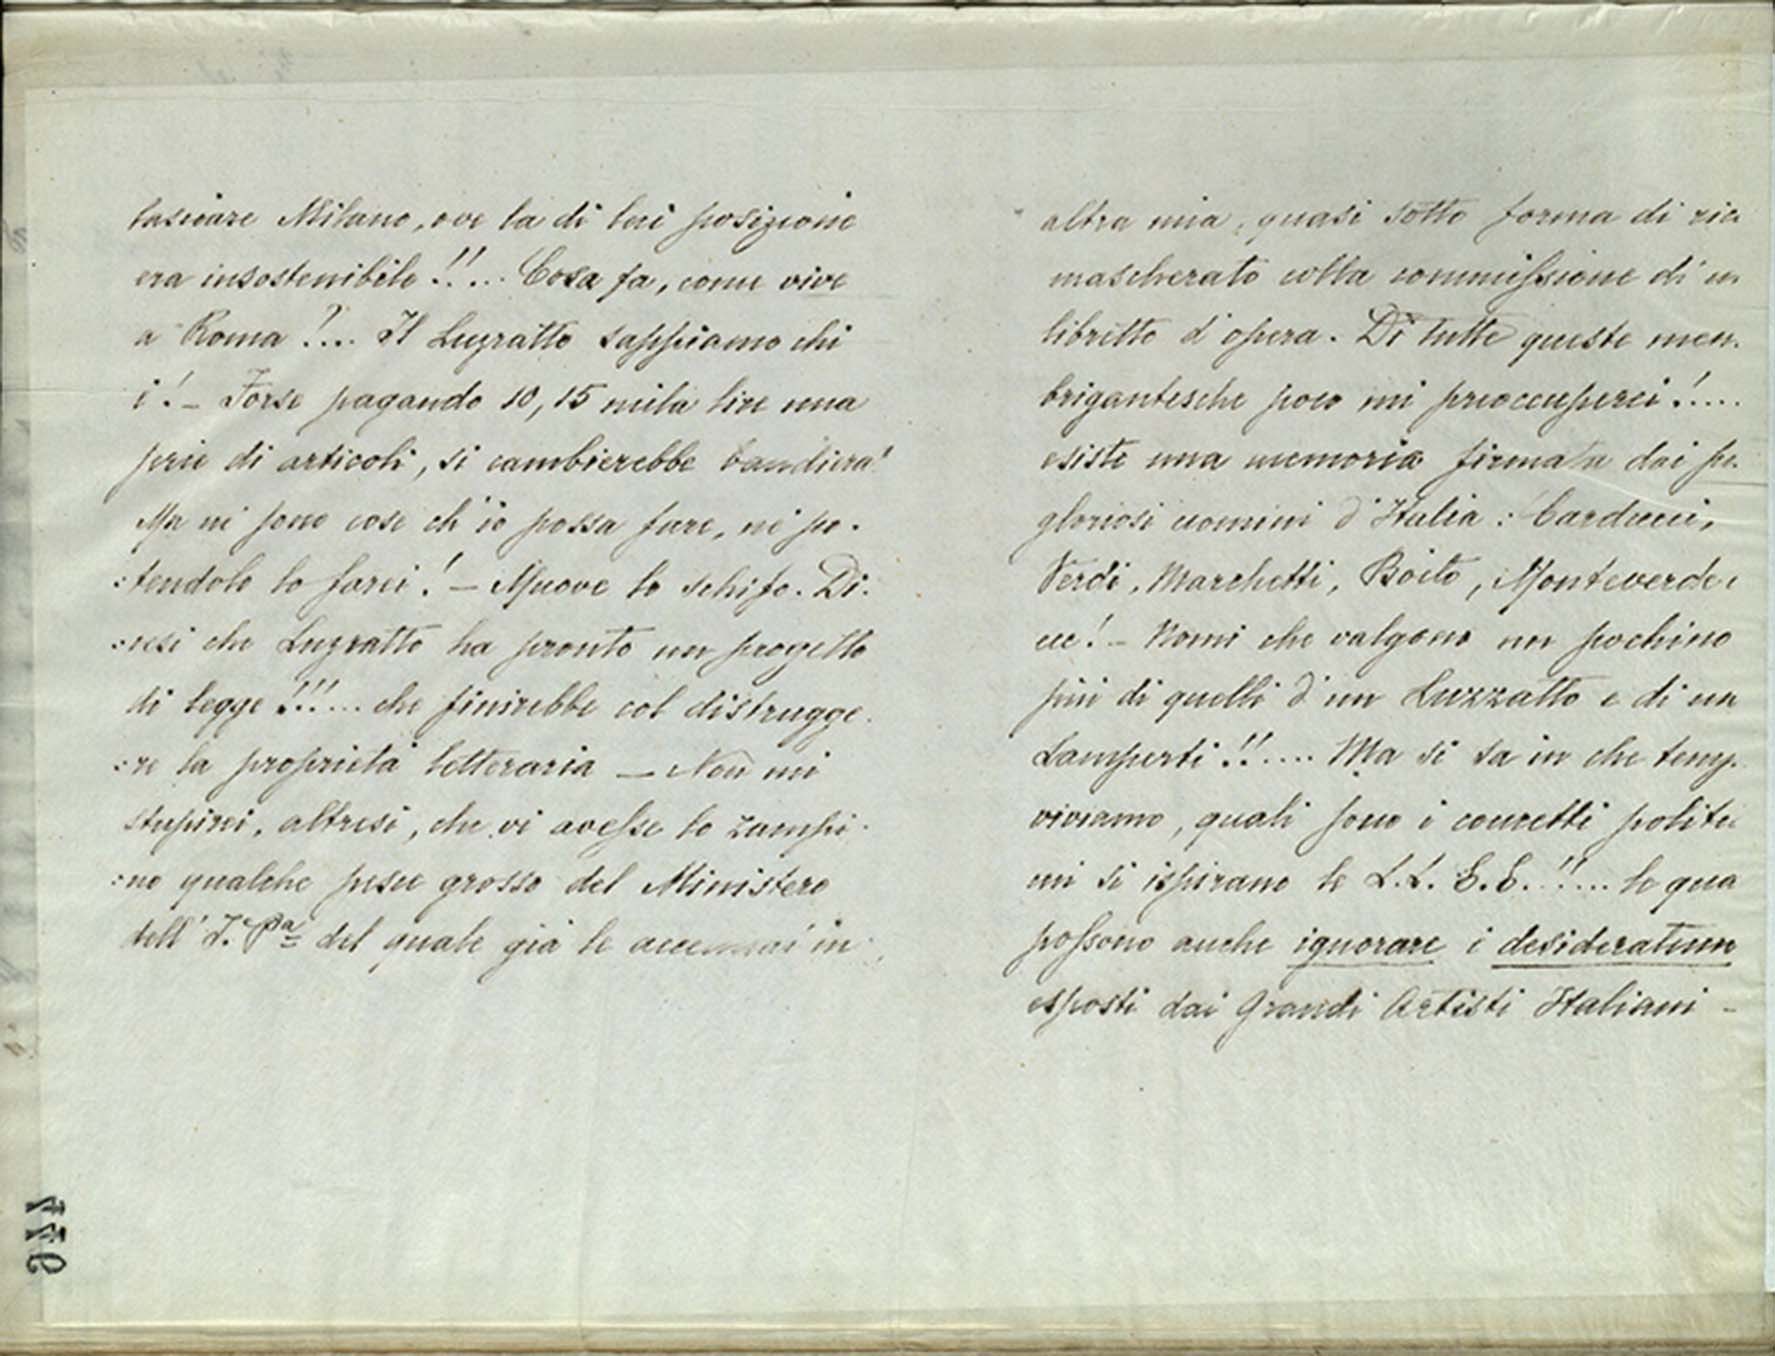 lasciare Milano, ove la di lui posizione
era insostenibile!!... Cosa fa, come vive
a Roma?... Il Luzzatto sappiamo chi
è! – Forse pagando 10, 15 mila lire una
serie di articoli, si cambierebbe bandiera!
Ma ne sono cose ch'io possa fare, nè po-
:tendolo lo farei! – Muove lo schifo. Di-
:cesi che Luzzatto ha pronto un progetto
di legge!!!... che finirebbe col distrugge-
:re la proprietà letteraria – Non mi
stupirei, altresì, che vi avesse lo zampi-
:no qualche pesce grosso del Ministero
dell' I. Pa del quale già le accennai in
altra mia, quasi sotto forma di
mascherato colla commissione di
libretto d'opera. Di tutte queste
brigantesche poco mi preoccuperei!....
esiste una memoria firmata dai
gloriosi uomini d'Italia: Carducci,
Verdi, Marchetti, Boito, Monteverde
ecc! – Nomi che valgono un pochino
più di quelli d'un Luzzatto e di un
Lamperti!!.... Ma si sa in che
viviamo, quali sono i concetti
cui si ispirano le L.L. E.E.!!.... le
possono anche ignorare i desideratum
esposti dai Grandi Artisti Italiani –